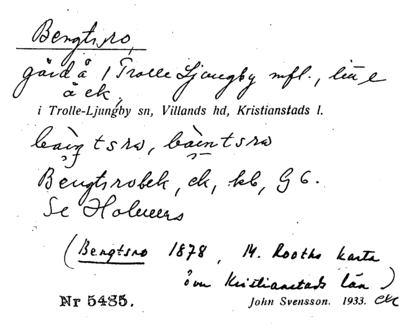 Bengtsro,
gård å 1 Trolle Ljungby mfl.,
å ek,
i Trolle-Ljungby sn, Villands hd, Kristianstads l.
Bengtsrobek, ek, kb, G 6.
Se Holmers
(Bengtsro 1878, M. Rooths karta
över Kristianstads län)
Nr 5485. John Svensson. 1933. ek